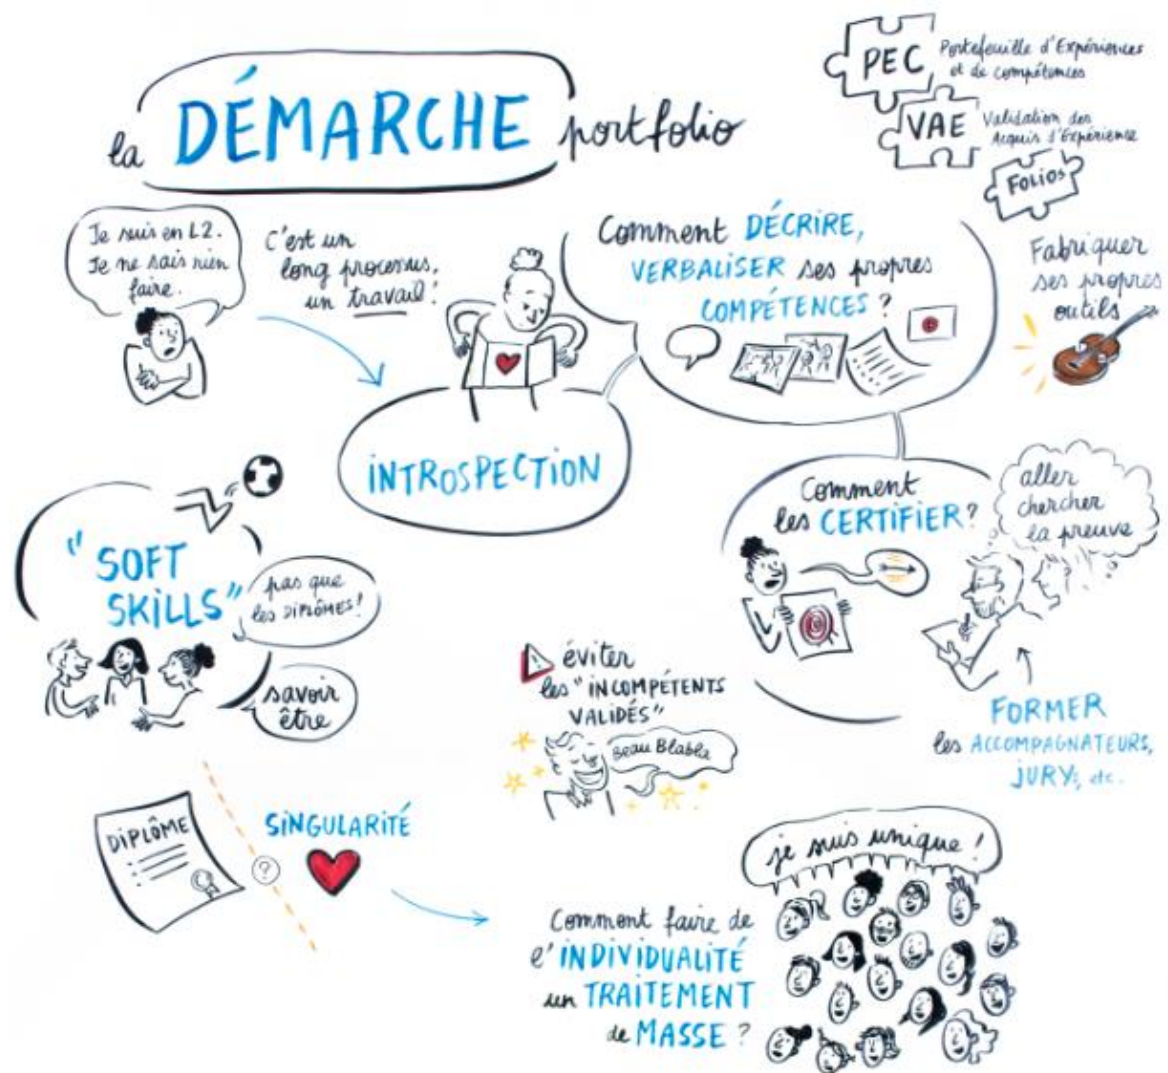 la DÉMARCHE portfolio
PEC
Portefeuille d'Expériences
et de compétences
VAE
Validation des
Acquis d'Expérience
FOLIOS
Je suis en L2.
Je ne sais rien
faire.
C'est un
long processus,
un travail !
Comment DÉCRIRE,
VERBALISER ses propres
COMPÉTENCES ?
Fabriquer
ses propres
outils
INTROSPECTION
"SOFT
SKILLS"
pas que
les DIPLÔMES !
savoir
être
Comment
les CERTIFIER ?
aller
chercher
la preuve
FORMER
les ACCOMPAGNATEURS,
JURYs, etc.
éviter
les "INCOMPÉTENTS
VALIDÉS"
Beau Blabla
DIPLÔME
?
SINGULARITÉ
je suis unique !
Comment faire de
l'INDIVIDUALITÉ
un TRAITEMENT
de MASSE ?